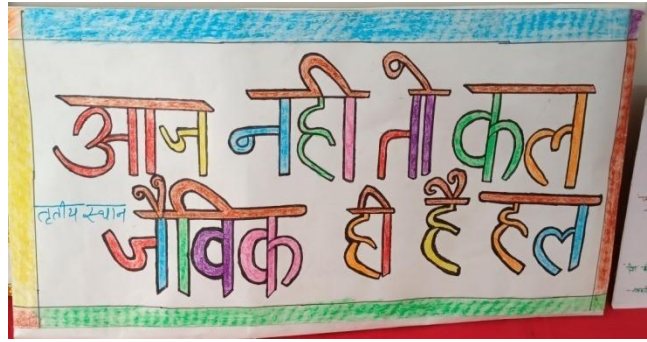 आज नही तो कल
तृतीय स्थान
जैविक ही है हल